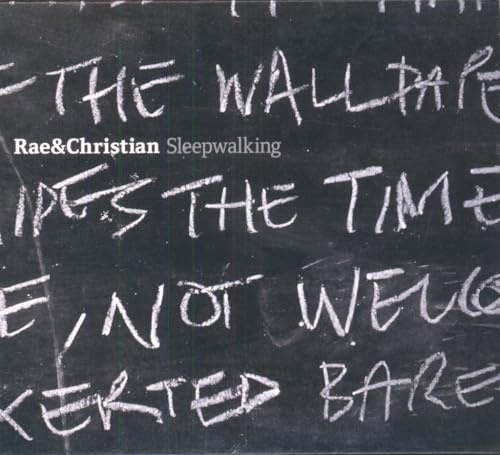 THE WALLPAPE
Rae&Christian Sleepwalking
IDES THE TIME
E, NOT WELCO
KERTED BARE